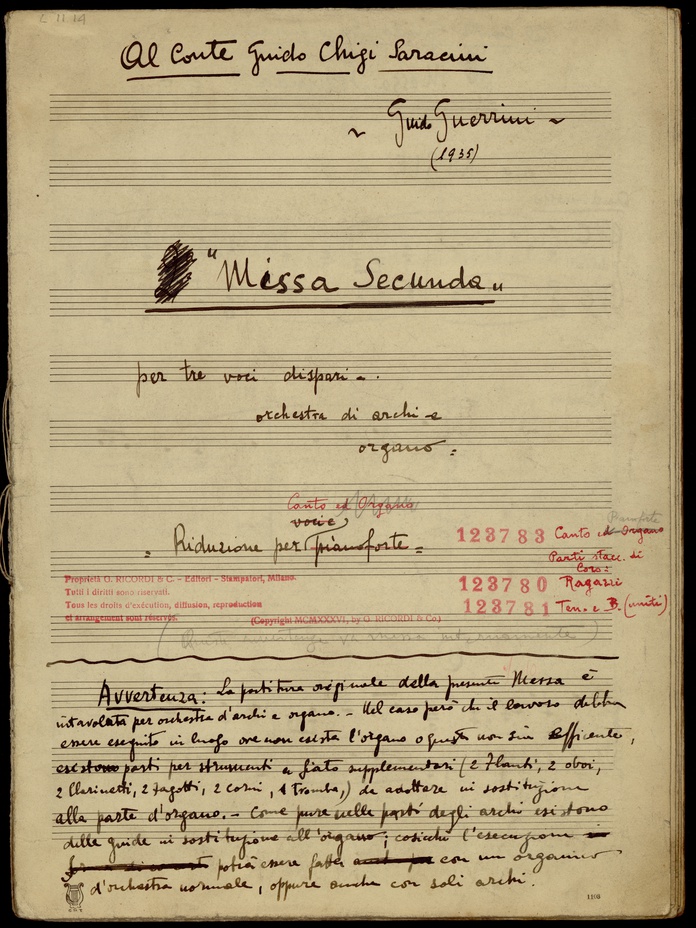 Al Conte Guido Chigi Saracini
~ Guido Guerrini ~
(1935)
"Missa Secunda"
per tre voci dispari -
orchestra di archi e
organo =
Canto ed Organo
voci e
= Riduzione per pianoforte =
Pianoforte
123783 Canto ed Organo
Parti stacc. di
Coro:
123780 Ragazzi
123781 Ten. e B. (uniti)
Proprietà G. RICORDI & C. - Editori - Stampatori, Milano.
Tutti i diritti sono riservati.
Tous les droits d'exécution, diffusion, reproduction
et arrangement sont réservés.
(Copyright MCMXXXVI, by G. RICORDI & Co.)
(Questa avvertenza va messa internamente)
Avvertenza: La partitura originale della presente Messa è
intavolata per orchestra d'archi e organo. - Nel caso però che il lavoro debba
essere eseguito in luogo ove non esista l'organo o questo non sia efficente,
esistono parti per strumenti a fiato supplementari (2 Flauti, 2 oboi,
2 Clarinetti, 2 Fagotti, 2 corni, 1 Tromba,) da adottare in sostituzione
alla parte d'organo. - Come pure nelle parti degli archi esistono
delle guide in sostituzione all'organo; cosicchè l'esecuzione in
potrà essere fatta con un organico
d'orchestra normale, oppure anche con soli archi.